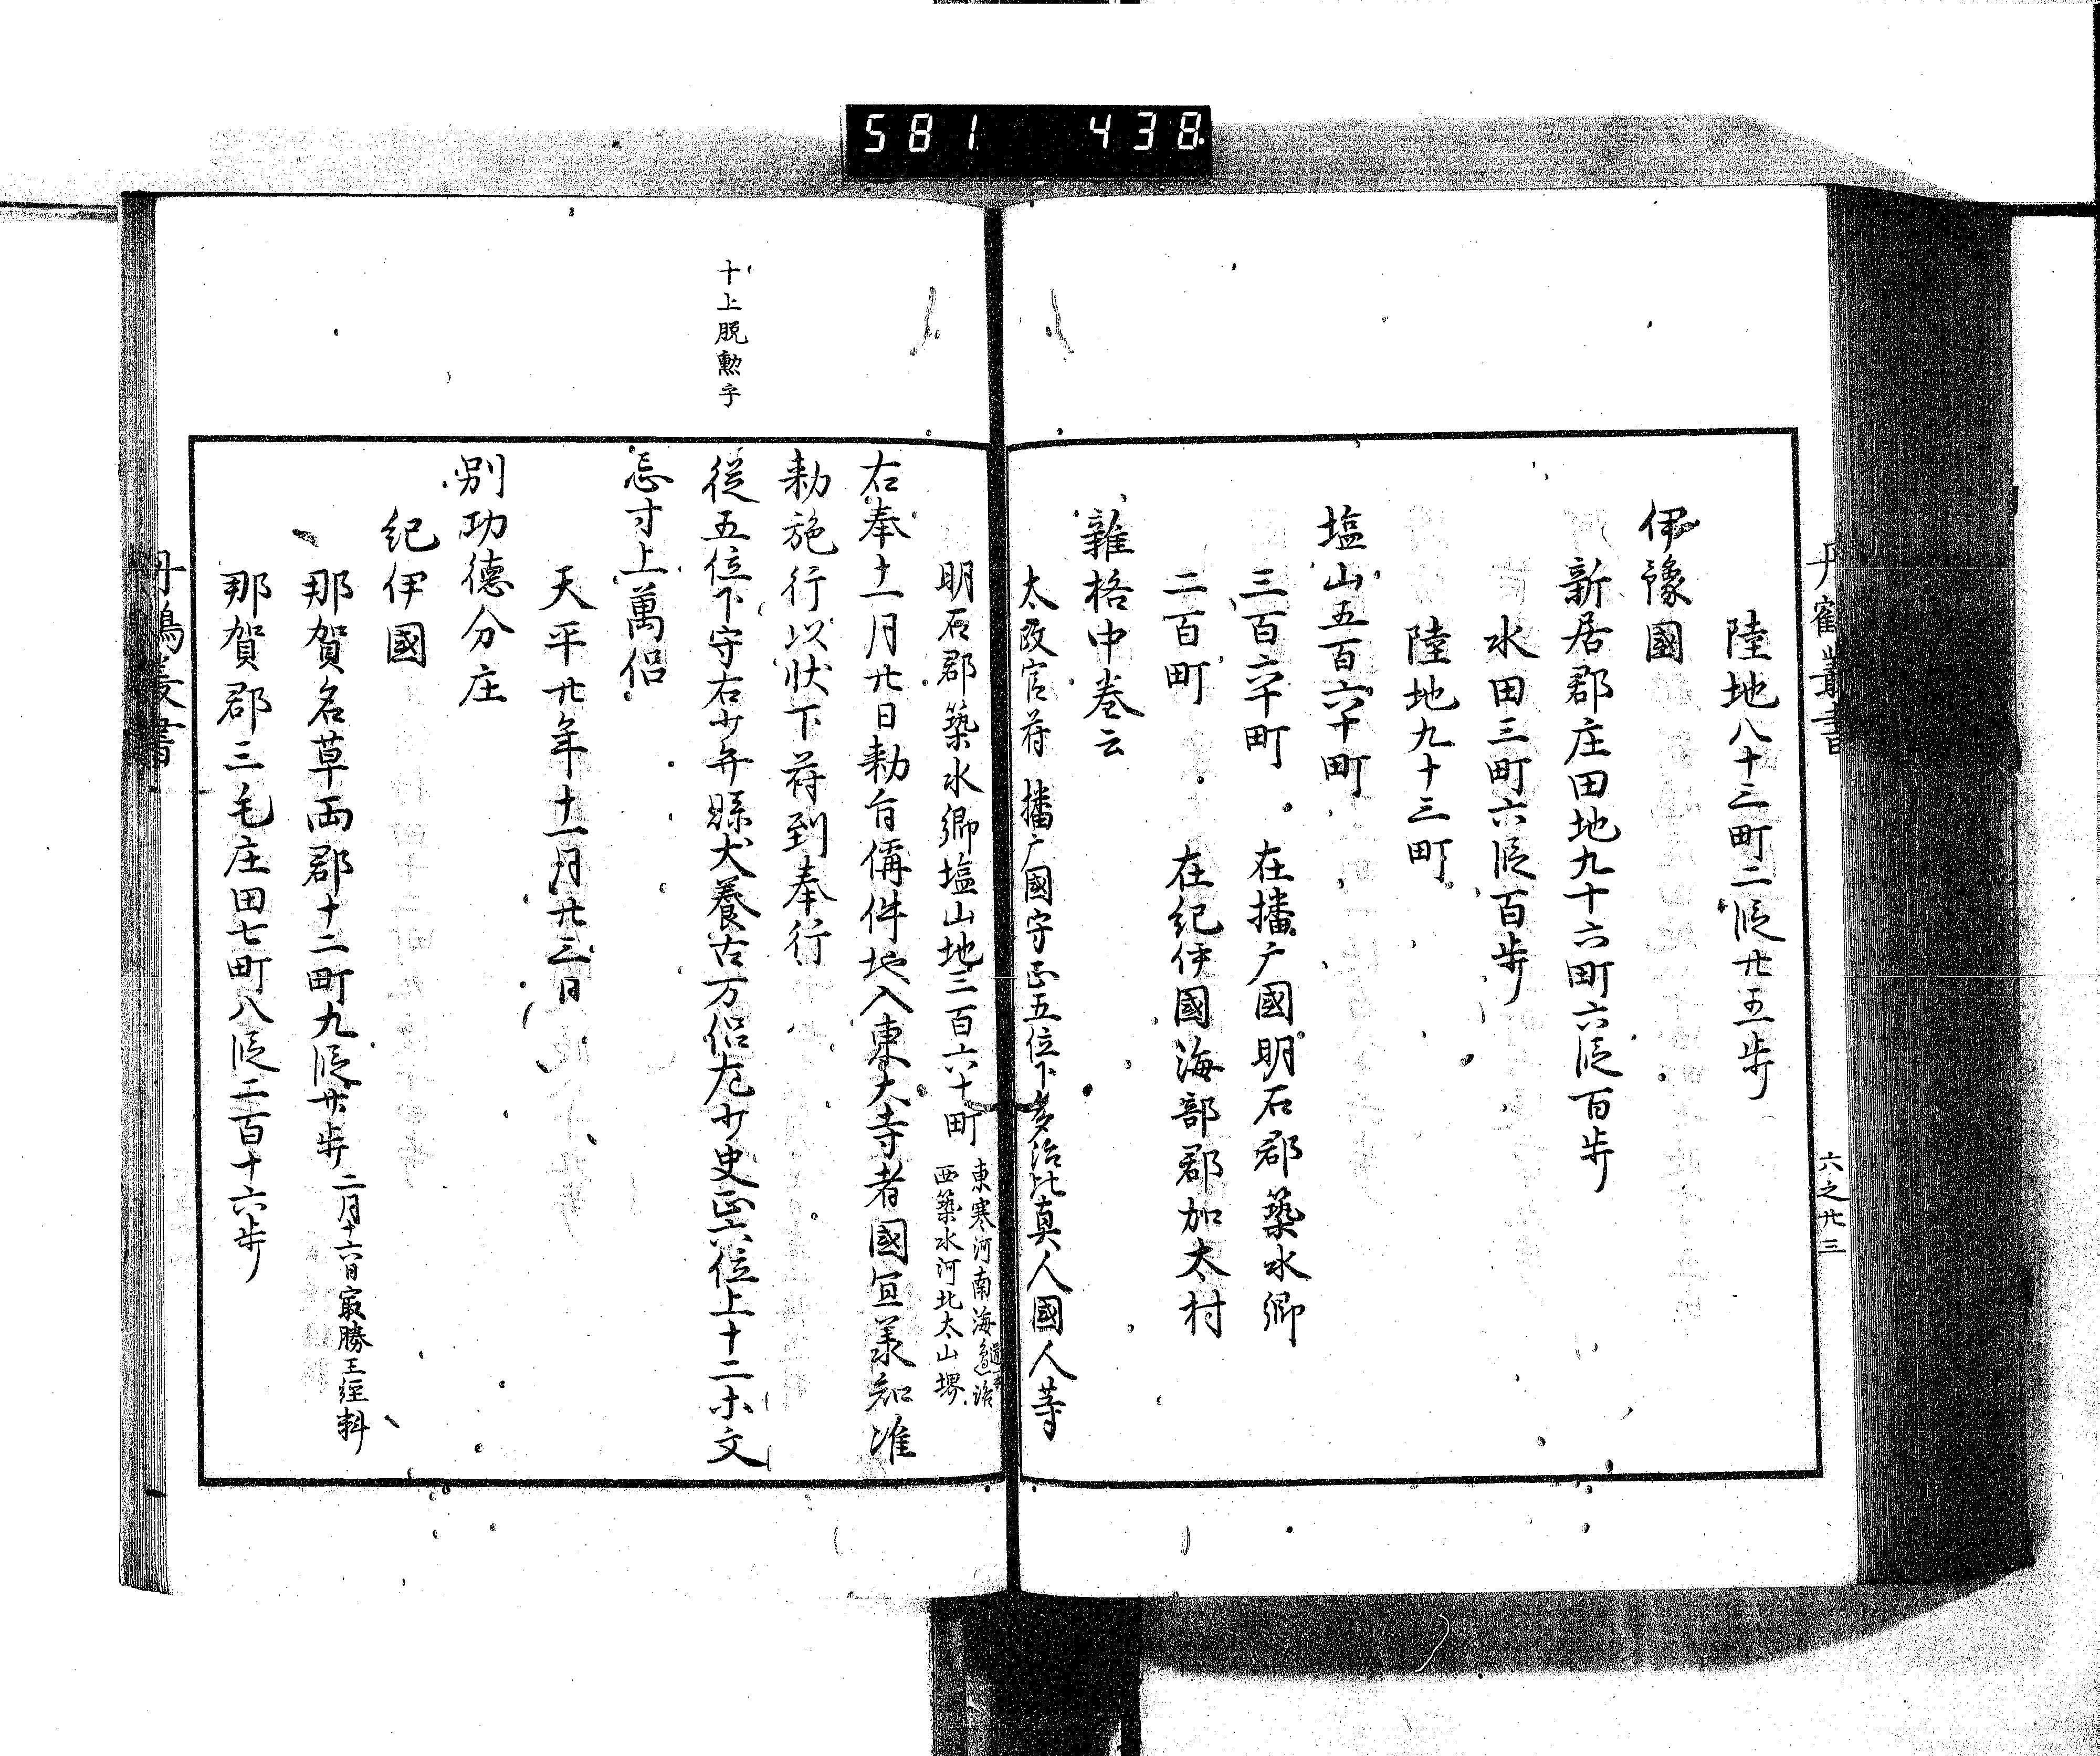 581 438
丹鶴叢書
六之廿三
陸地八十三町二段廿五歩
伊豫國
新居郡庄田地九十六町六段百歩
水田三町六段百歩
陸地九十三町
塩山五百六十町
三百六十町 在播广國明石郡築水郷
二百町 在紀伊國海部郡加太村
雜格中巻云
太政官苻 播广國守正五位下多治比真人國人等
明石郡築水郷塩山地三百六十町 東寒河南海邉路
西築水河北太山堺
右奉十一月廿日勅旨偁件地入東大寺者國宜羕知准
勅施行以状下苻到奉行
十上脱勲字
従五位下守右少弁縣犬養古万侶左少史正六位上十二ホ文
忌寸上萬侶
天平廿年十一月廿三日
別功德分庄
紀伊國
那賀名草両郡十二町九段廿歩 二月十六日㝡勝王経料
那賀郡三毛庄田七町八段二百十六歩
丹鶴叢書